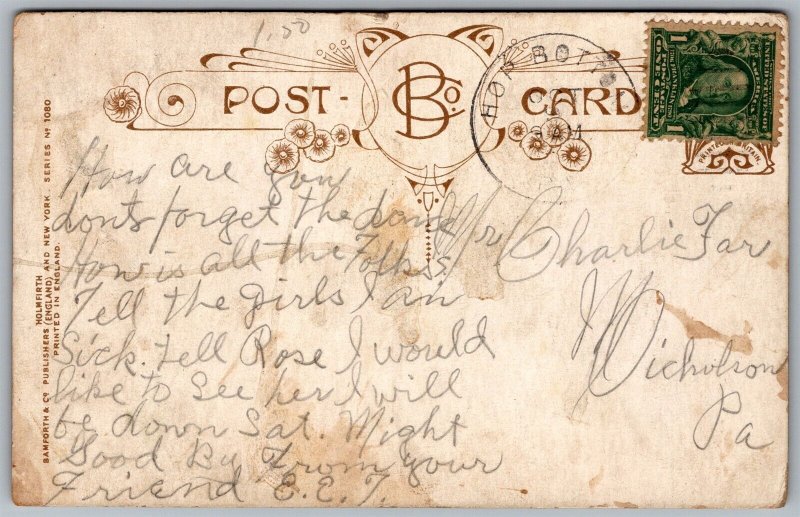 1.50
POST-
B Co.
CARD
HOP BOTTO
OCT
AM
1
1
HOLMFIRTH
BAMFORTH & Co PUBLISHERS (ENGLAND) AND NEW YORK SERIES No 1080
PRINTED IN ENGLAND.
How are you
dont forget the dance
How is all the Folks
Tell the girls I am
Sick. Tell Rose I would
like to see her I will
be down Sat. Might
Good By From your
Friend E.E.T.
Mr Charlie Far
Nicholson
Pa